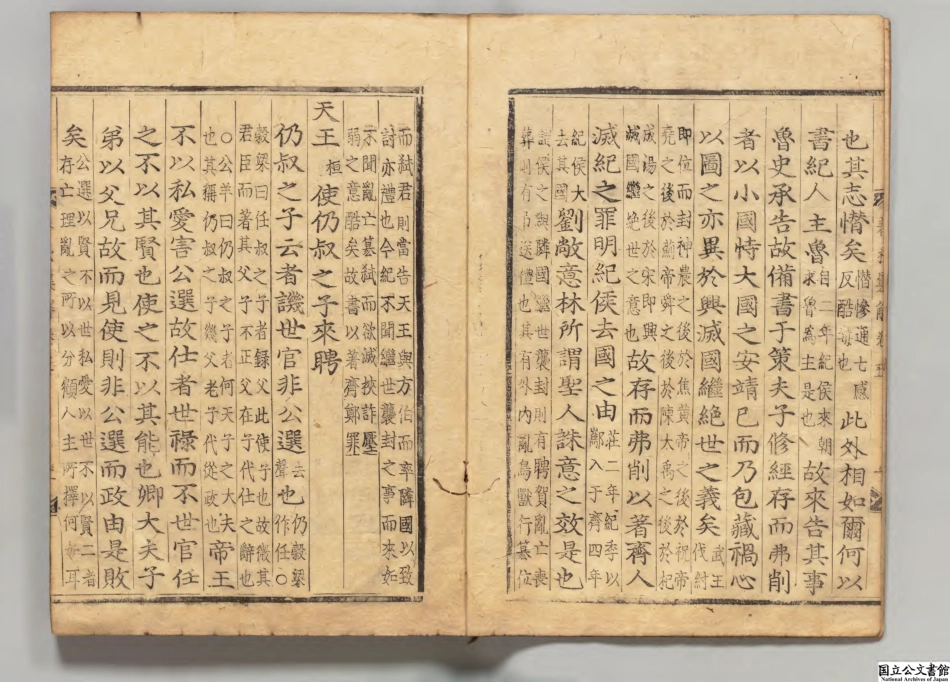 也其志憯矣憯慘通七感反酷毒也此外相如爾何以
書紀人主魯自二年紀侯來朝求魯為主是也故來告其事
魯史承告故備書于策夫子修經存而弗削
者以小國恃大國之安靖已而乃包藏禍心
以圖之亦異於興滅國繼絶世之義矣武王伐紂
即位而封神農之後於焦黄帝之後於祝帝
堯之後於薊帝舜之後於陳大禹之後於杞
成湯之後於宋即興滅國繼絶世之意也故存而弗削以著齊人
滅紀之罪明紀侯去國之由莊二年紀季以酅入于齊四年
紀侯大去其國劉敞意林所謂聖人誅意之效是也
諸侯之與隣國繼世襲封則有聘賀亂亡喪
葬則有吊送禮也其有外内亂鳥獸行簒位
而弑君則當告天王與方伯而率隣國以致
討亦禮也今紀不聞繼世襲封之事而來如
不聞亂亡簒弑而欲滅挾詐壓
弱之意酷矣故書以著齊鄭罪
天王桓使仍叔之子來聘
仍叔之子云者譏世官非公選去聲也仍穀梁作任○
穀梁曰任叔之子者録父以使子也故微其
君臣而著其父子不正父在子代仕之辭也
○公羊曰仍叔之子者何天子之大夫也其稱仍叔之子譏父老子代從政也帝王
不以私愛害公選故仕者世禄而不世官任
之不以其賢也使之不以其能也卿大夫子
弟以父兄故而見使則非公選而政由是敗
矣公選以賢不以世私愛以世不以賢二者存亡理亂之所以分顧人主所擇何如耳
国立公文書館
National Archives of Japan